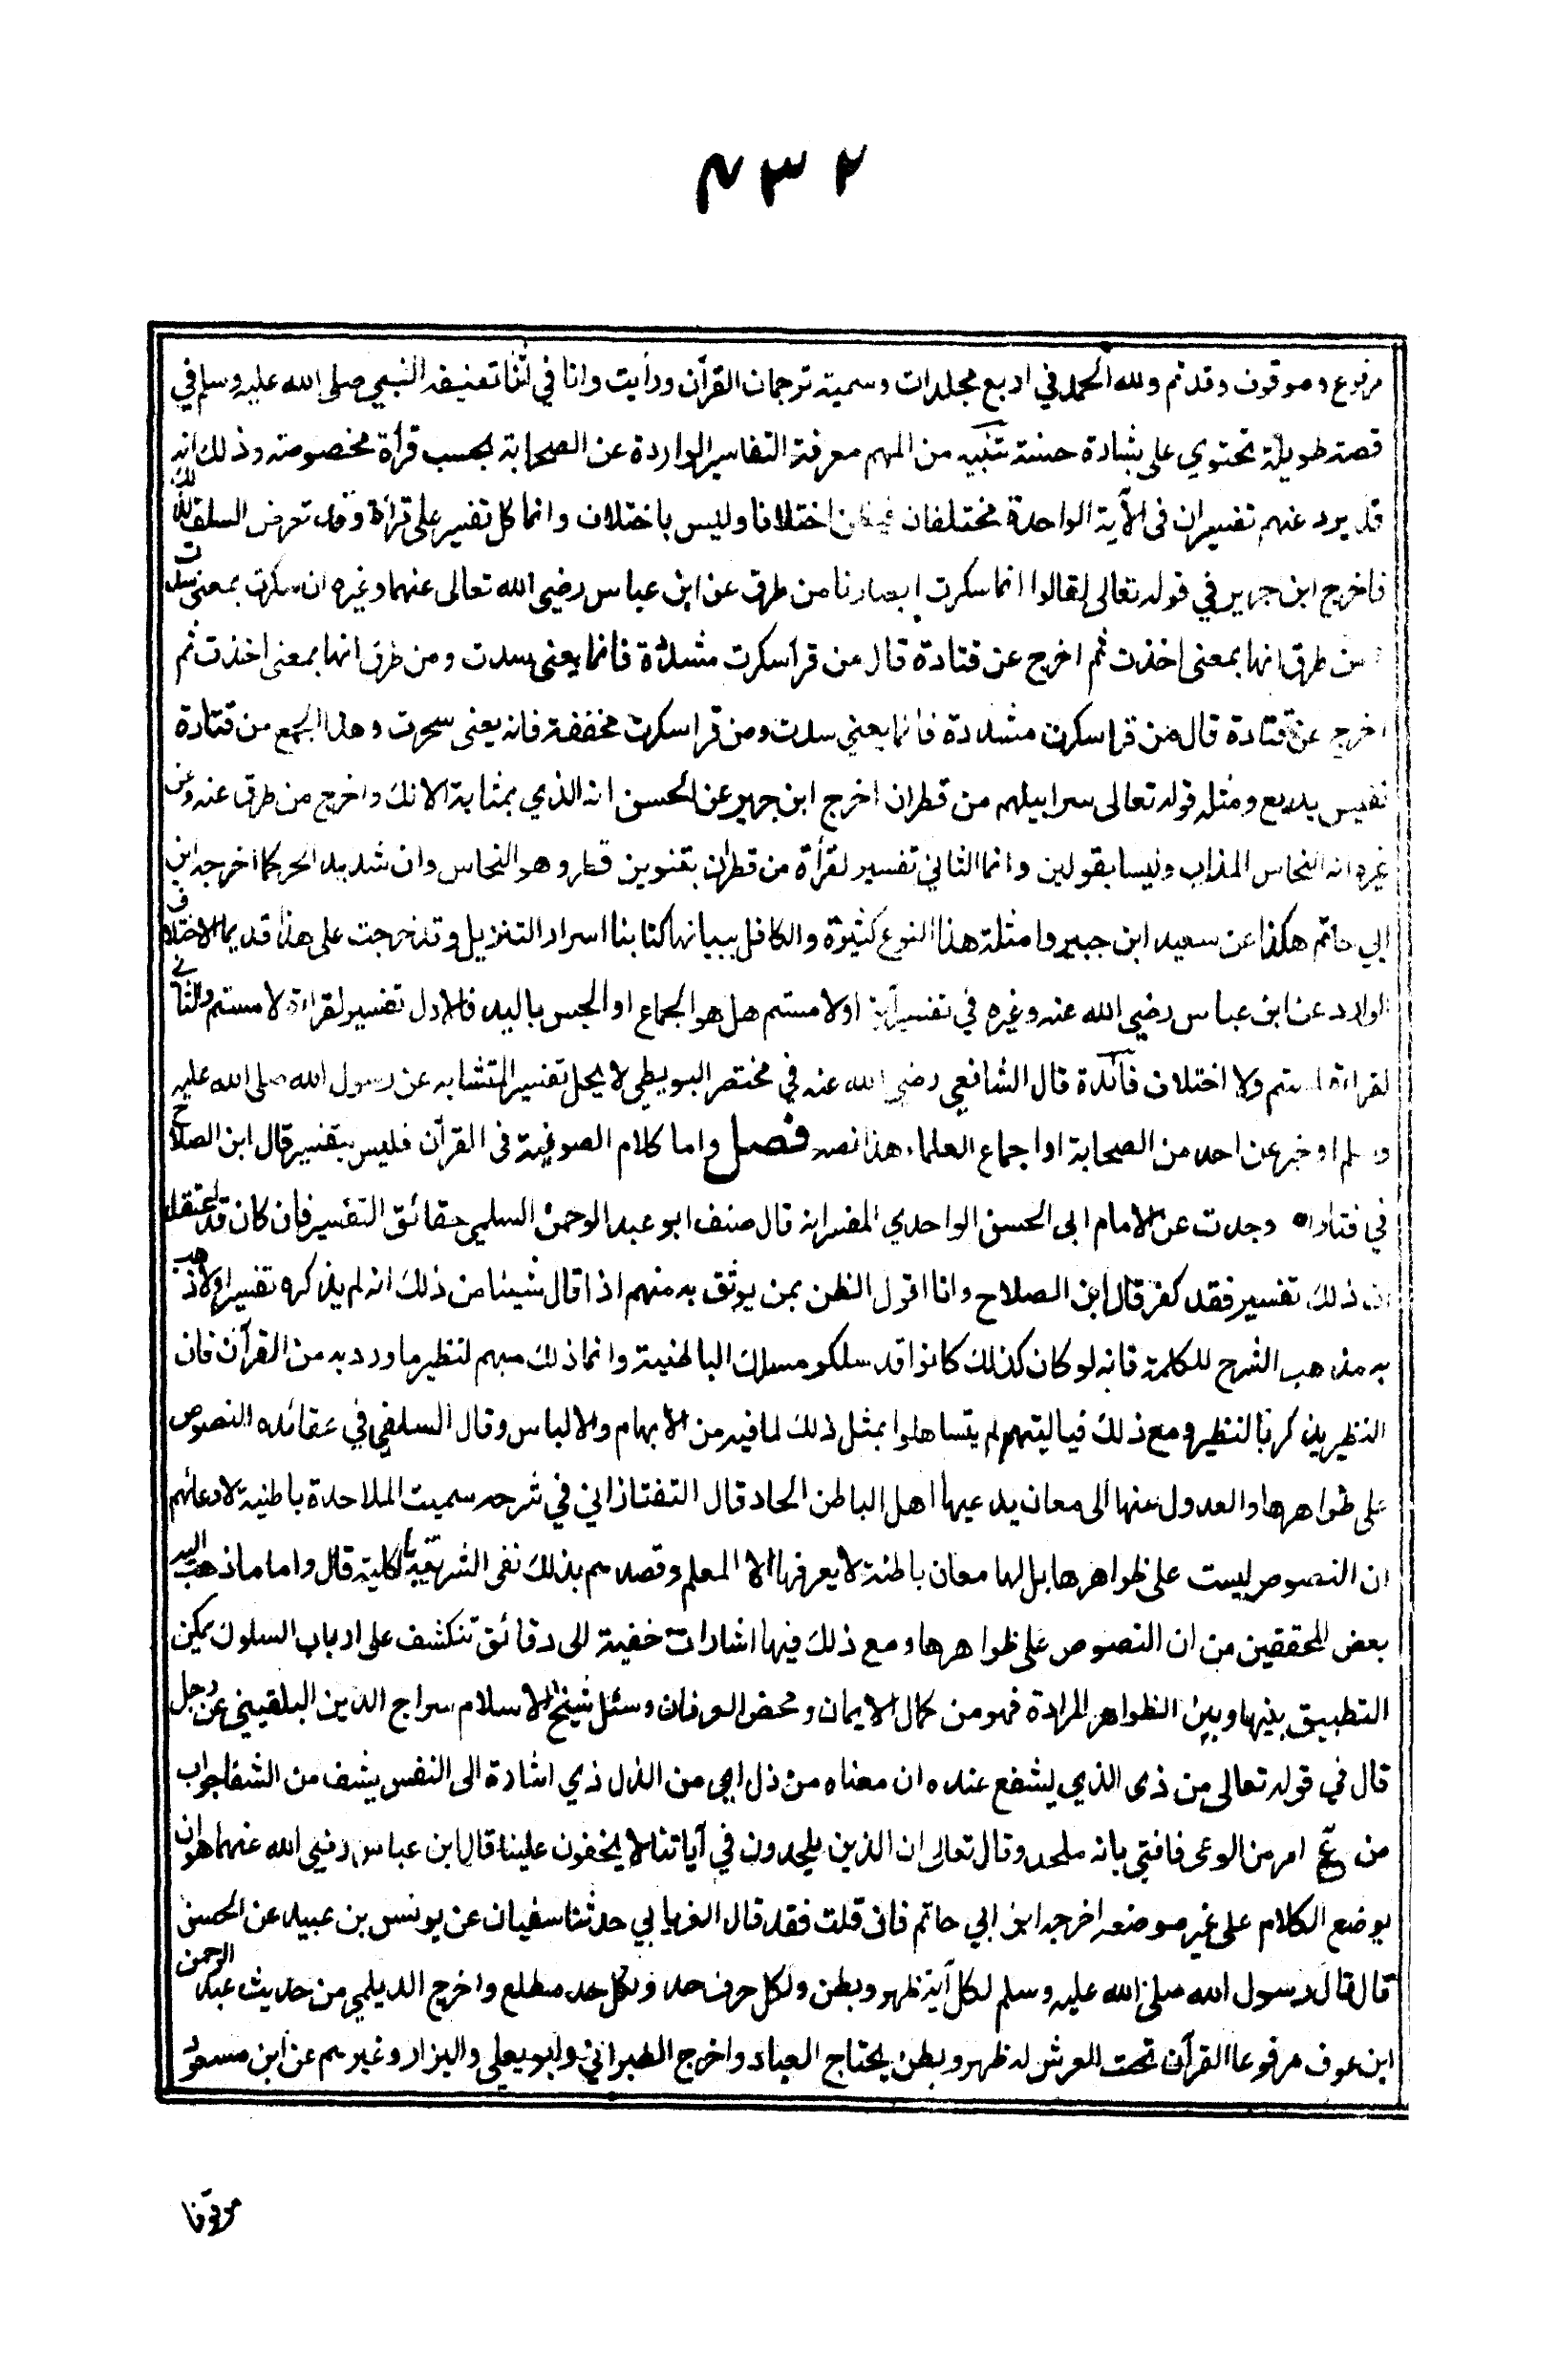 ٢٣٤
مرفوع وموقوف وقد تم ولله الحمد في اربع مجلدات وسميته ترجمان القرآن ورأيت وانا في اثنا تصنيفه النبي صلى الله عليه وسلم في
قصة طويلة تحتوي على بشارة حسنة تنبيه من المهم معرفة التفاسير الواردة عن الصحابة بحسب قرأة مخصوصة وذلك انه
قد يرد عنهم تفسيران فى الآية الواحدة مختلفان فيظن اختلافا وليس باختلاف وانما كل تفسير على قرأة وقد تعرض السلف لذلك
فاخرج ابن جرير في قوله تعالى لقالوا انما سكرت ابصارنا من طرق عن ابن عباس رضي الله تعالى عنهما وغيره ان سكرت بمعنى سدت
من طرق انها بمعنى اخذت ثم اخرج عن قتادة قال من قرأ سكرت مشددة فانما يعنى سدت ومن طرق انها بمعنى اخذت ثم
اخرج عن قتادة قال من قرا سكرت مشددة فانما يعني سدت ومن قرا سكرت مخففة فانه يعنى سحرت وهذا الجمع من قتادة
نفيس بديع ومثله قوله تعالى سرابيلهم من قطران اخرج ابن جرير عن الحسن انه الذي بمثابة الانك واخرج من طرق عنه وعن
غيره انه النحاس المذاب وليسا بقولين وانما الثاني تفسير لقرأة من قطران بتنوين قطر وهو النحاس وان شديد الحر كما اخرجه ابن
ابي حاتم هكذا عن سعيد ابن جبير وامثلة هذا النوع كثيرة والكافل ببيانها كتابنا اسرار التنزيل وقد خرجت على هذا قديما الاختلاف
الوارد عن ابن عباس رضي الله عنه وغيره في تفسير آية اولامستم هل هو الجماع او الجس باليد فالاول تفسير لقراءة لامستم والثاني
لقراءة لمستم ولا اختلاف فائدة قال الشافعي رضي الله عنه في مختصر البويطي لا يحل تفسير المتشابه عن رسول الله صلى الله عليه
وسلم او خبر عن احد من الصحابة او اجماع العلماء هذا نصه فصل واما كلام الصوفية فى القرآن فليس بتفسير قال ابن الصلاح
في فتاواه وجدت عن الامام ابى الحسن الواحدي المفسر انه قال صنف ابو عبد الرحمن السلمي حقائق التفسير فان كان قد اعتقد
ان ذلك تفسير فقد كفر قال ابن الصلاح وانا اقول الظن بمن يوثق به منهم اذا قال شيئا من ذلك انه لم يذكره تفسيرا ولا ذهب
به مذهب الشرح للكلمة فانه لو كان كذلك كانوا قد سلكو مسلك الباطنية وانما ذلك مبهم لنظير ما ورد به من القرآن فان
النظير يذكر بالنظير ومع ذلك فياليتهم لم يتساهلوا بمثل ذلك لما فيه من الابهام والالباس وقال السلفي في عقائده النصوص
على ظواهرها والعدول عنها الى معان يدعيها اهل الباطن الحاد قال التفتازاني في شرحه سميت الملاحدة باطنية لادعائهم
ان النصوص ليست على ظواهرها بل لها معان باطنة لا يعرفها الا المعلم وقصدهم بذلك نفى الشريعة بالكلية قال واما ما ذهب اليه
بعض المحققين من ان النصوص على ظواهرها ومع ذلك فيها اشارات خفية الى دقائق تنكشف على ارباب السلوك يمكن
التطبيق بينها وبين الظواهر المرادة فهو من كمال الايمان ومحض العرفان وسئل شيخ الاسلام سراج الدين البلقيني عن رجل
قال في قوله تعالى من ذى الذي يشفع عنده ان معناه من ذل اي من الذل ذي اشارة الى النفس يشف من الشفا جواب
من ع امر من الوعى فافتى بانه ملحد وقال تعالى ان الذين يلحدون في آياتنا لا يخفون علينا قال ابن عباس رضي الله عنهما هو ان
يوضع الكلام على غير موضعه اخرجه ابن ابي حاتم فان قلت فقد قال الفريابي حدثنا سفيان عن يونس بن عبيد عن الحسن
قال قال رسول الله صلى الله عليه وسلم لكل آية ظهر وبطن ولكل حرف حد ولكل حد مطلع واخرج الديلمي من حديث عبد الرحمن
ابن عوف مرفوعا القرآن تحت العرش له ظهر وبطن يحتاج العباد واخرج الطبراني وابو يعلى والبزار وغيرهم عن ابن مسعود
موقوفا